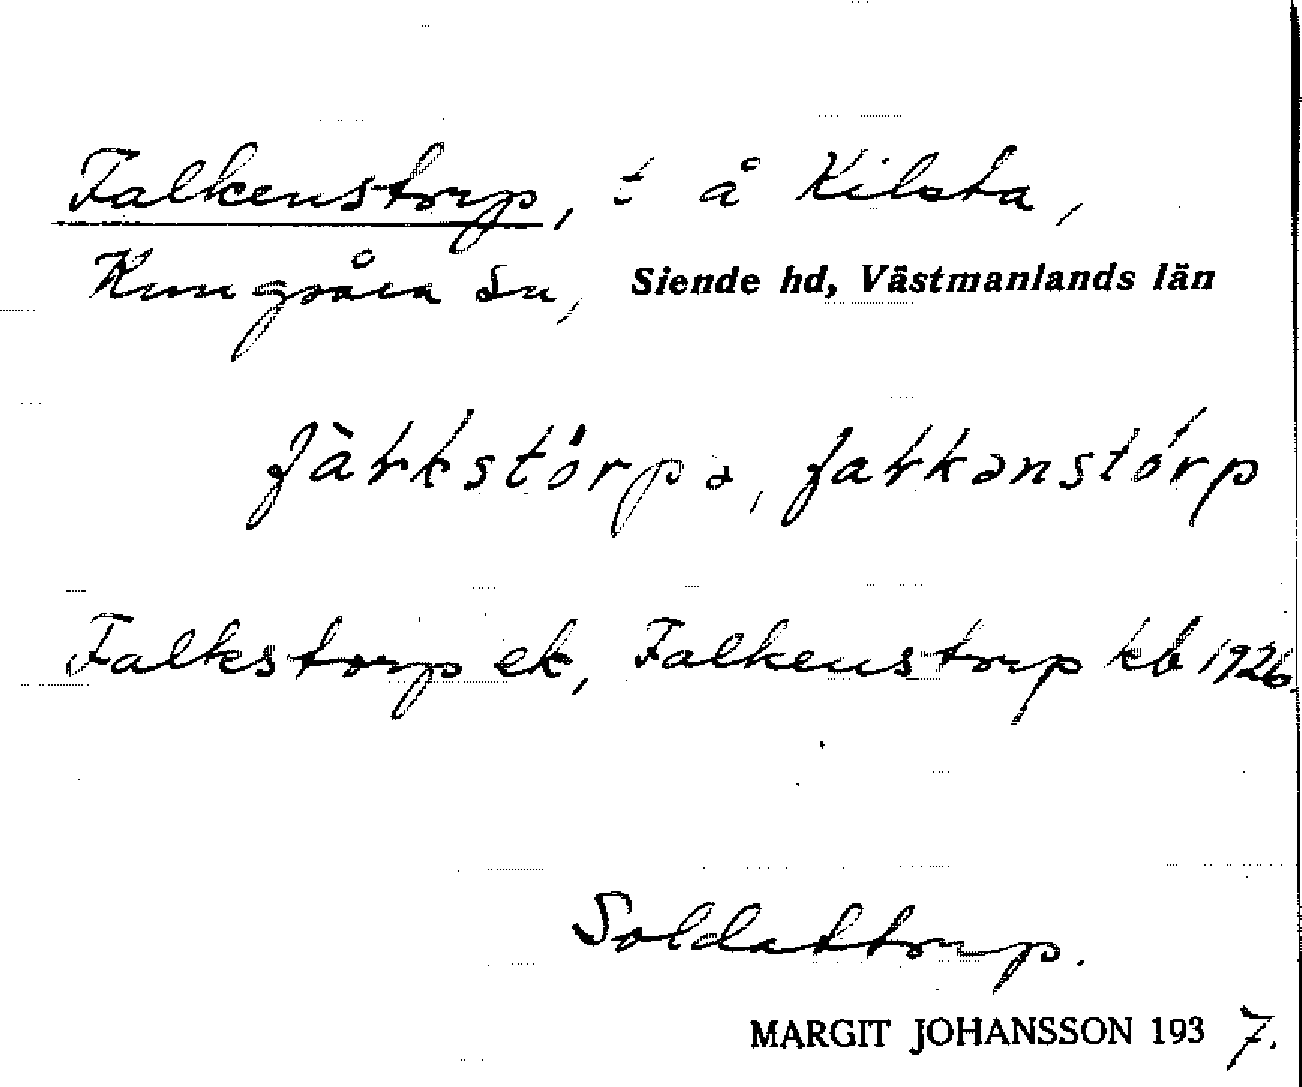 Falkenstorp, t å Kilsta,
Kungsåra sn, Siende hd, Västmanlands län
fàlkstörpə, falkənstórp
Falkstorp ek, Falkenstorp kb 1926.
Soldattorp.
MARGIT JOHANSSON 1937.